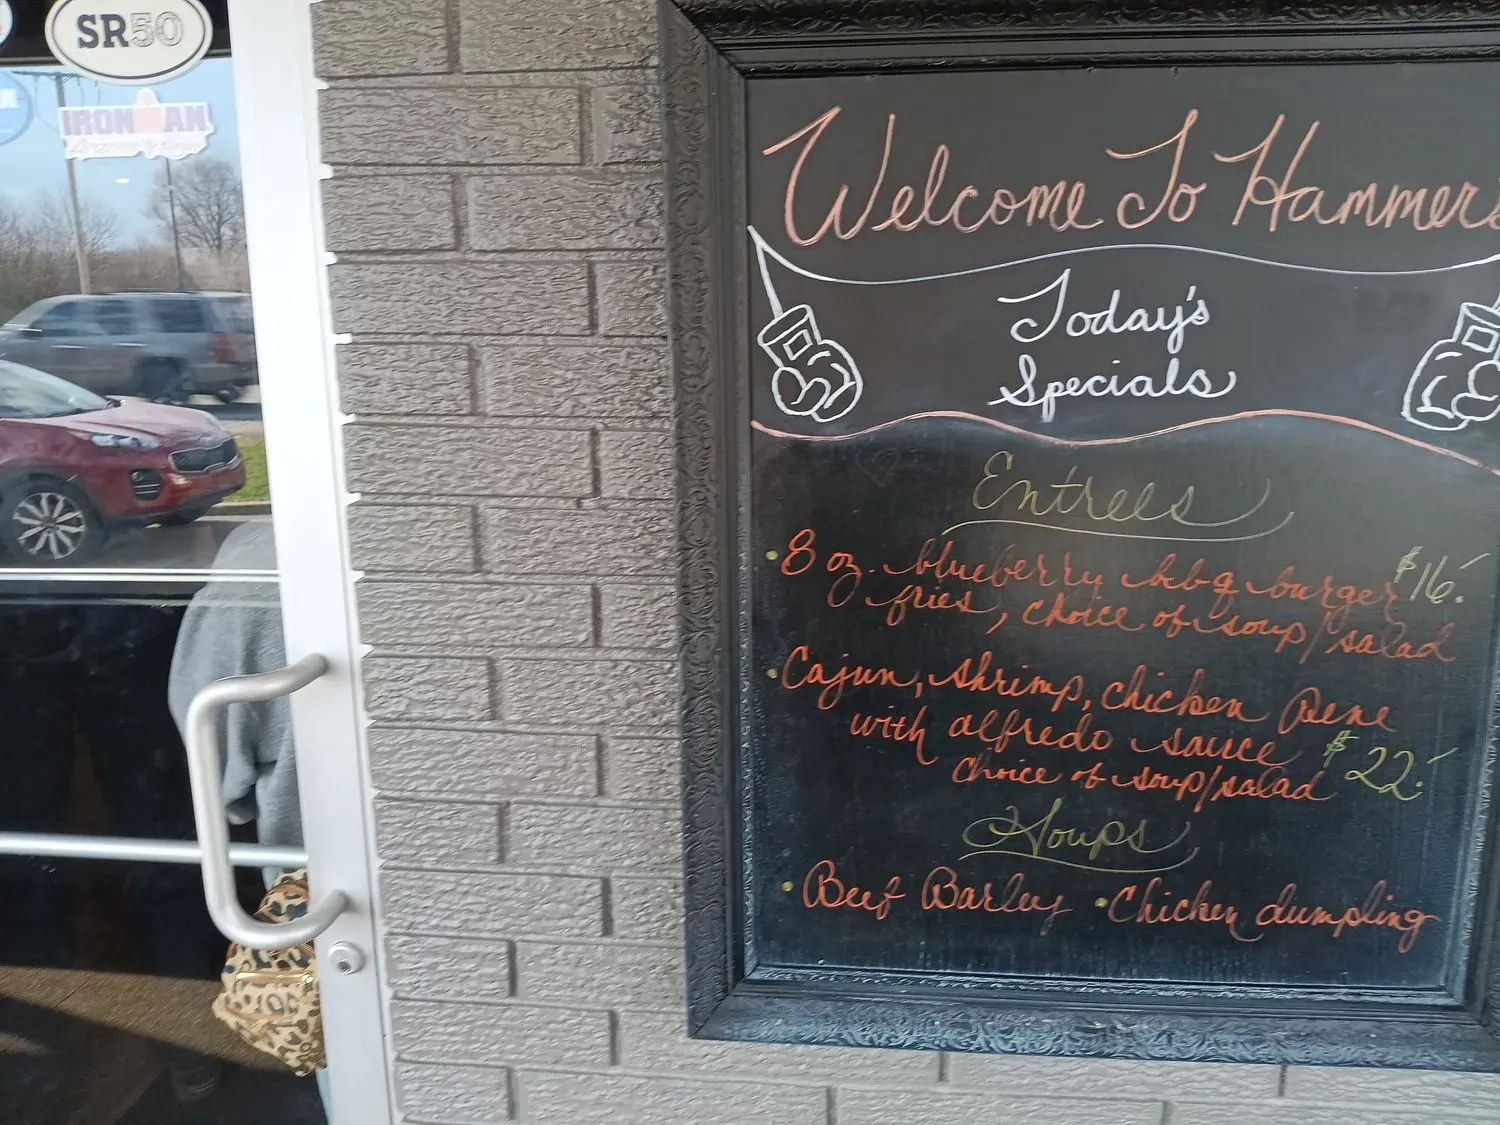 SR50
IRONMAN
Welcome To Hammers
Today's
Specials
Entrees
• 8 oz. blueberry bbq burger $16.
fries, choice of soup/salad
• Cajun, shrimp, chicken Pene
with alfredo sauce $22.
choice of soup/salad
Soups
• Beef Barley • Chicken dumpling